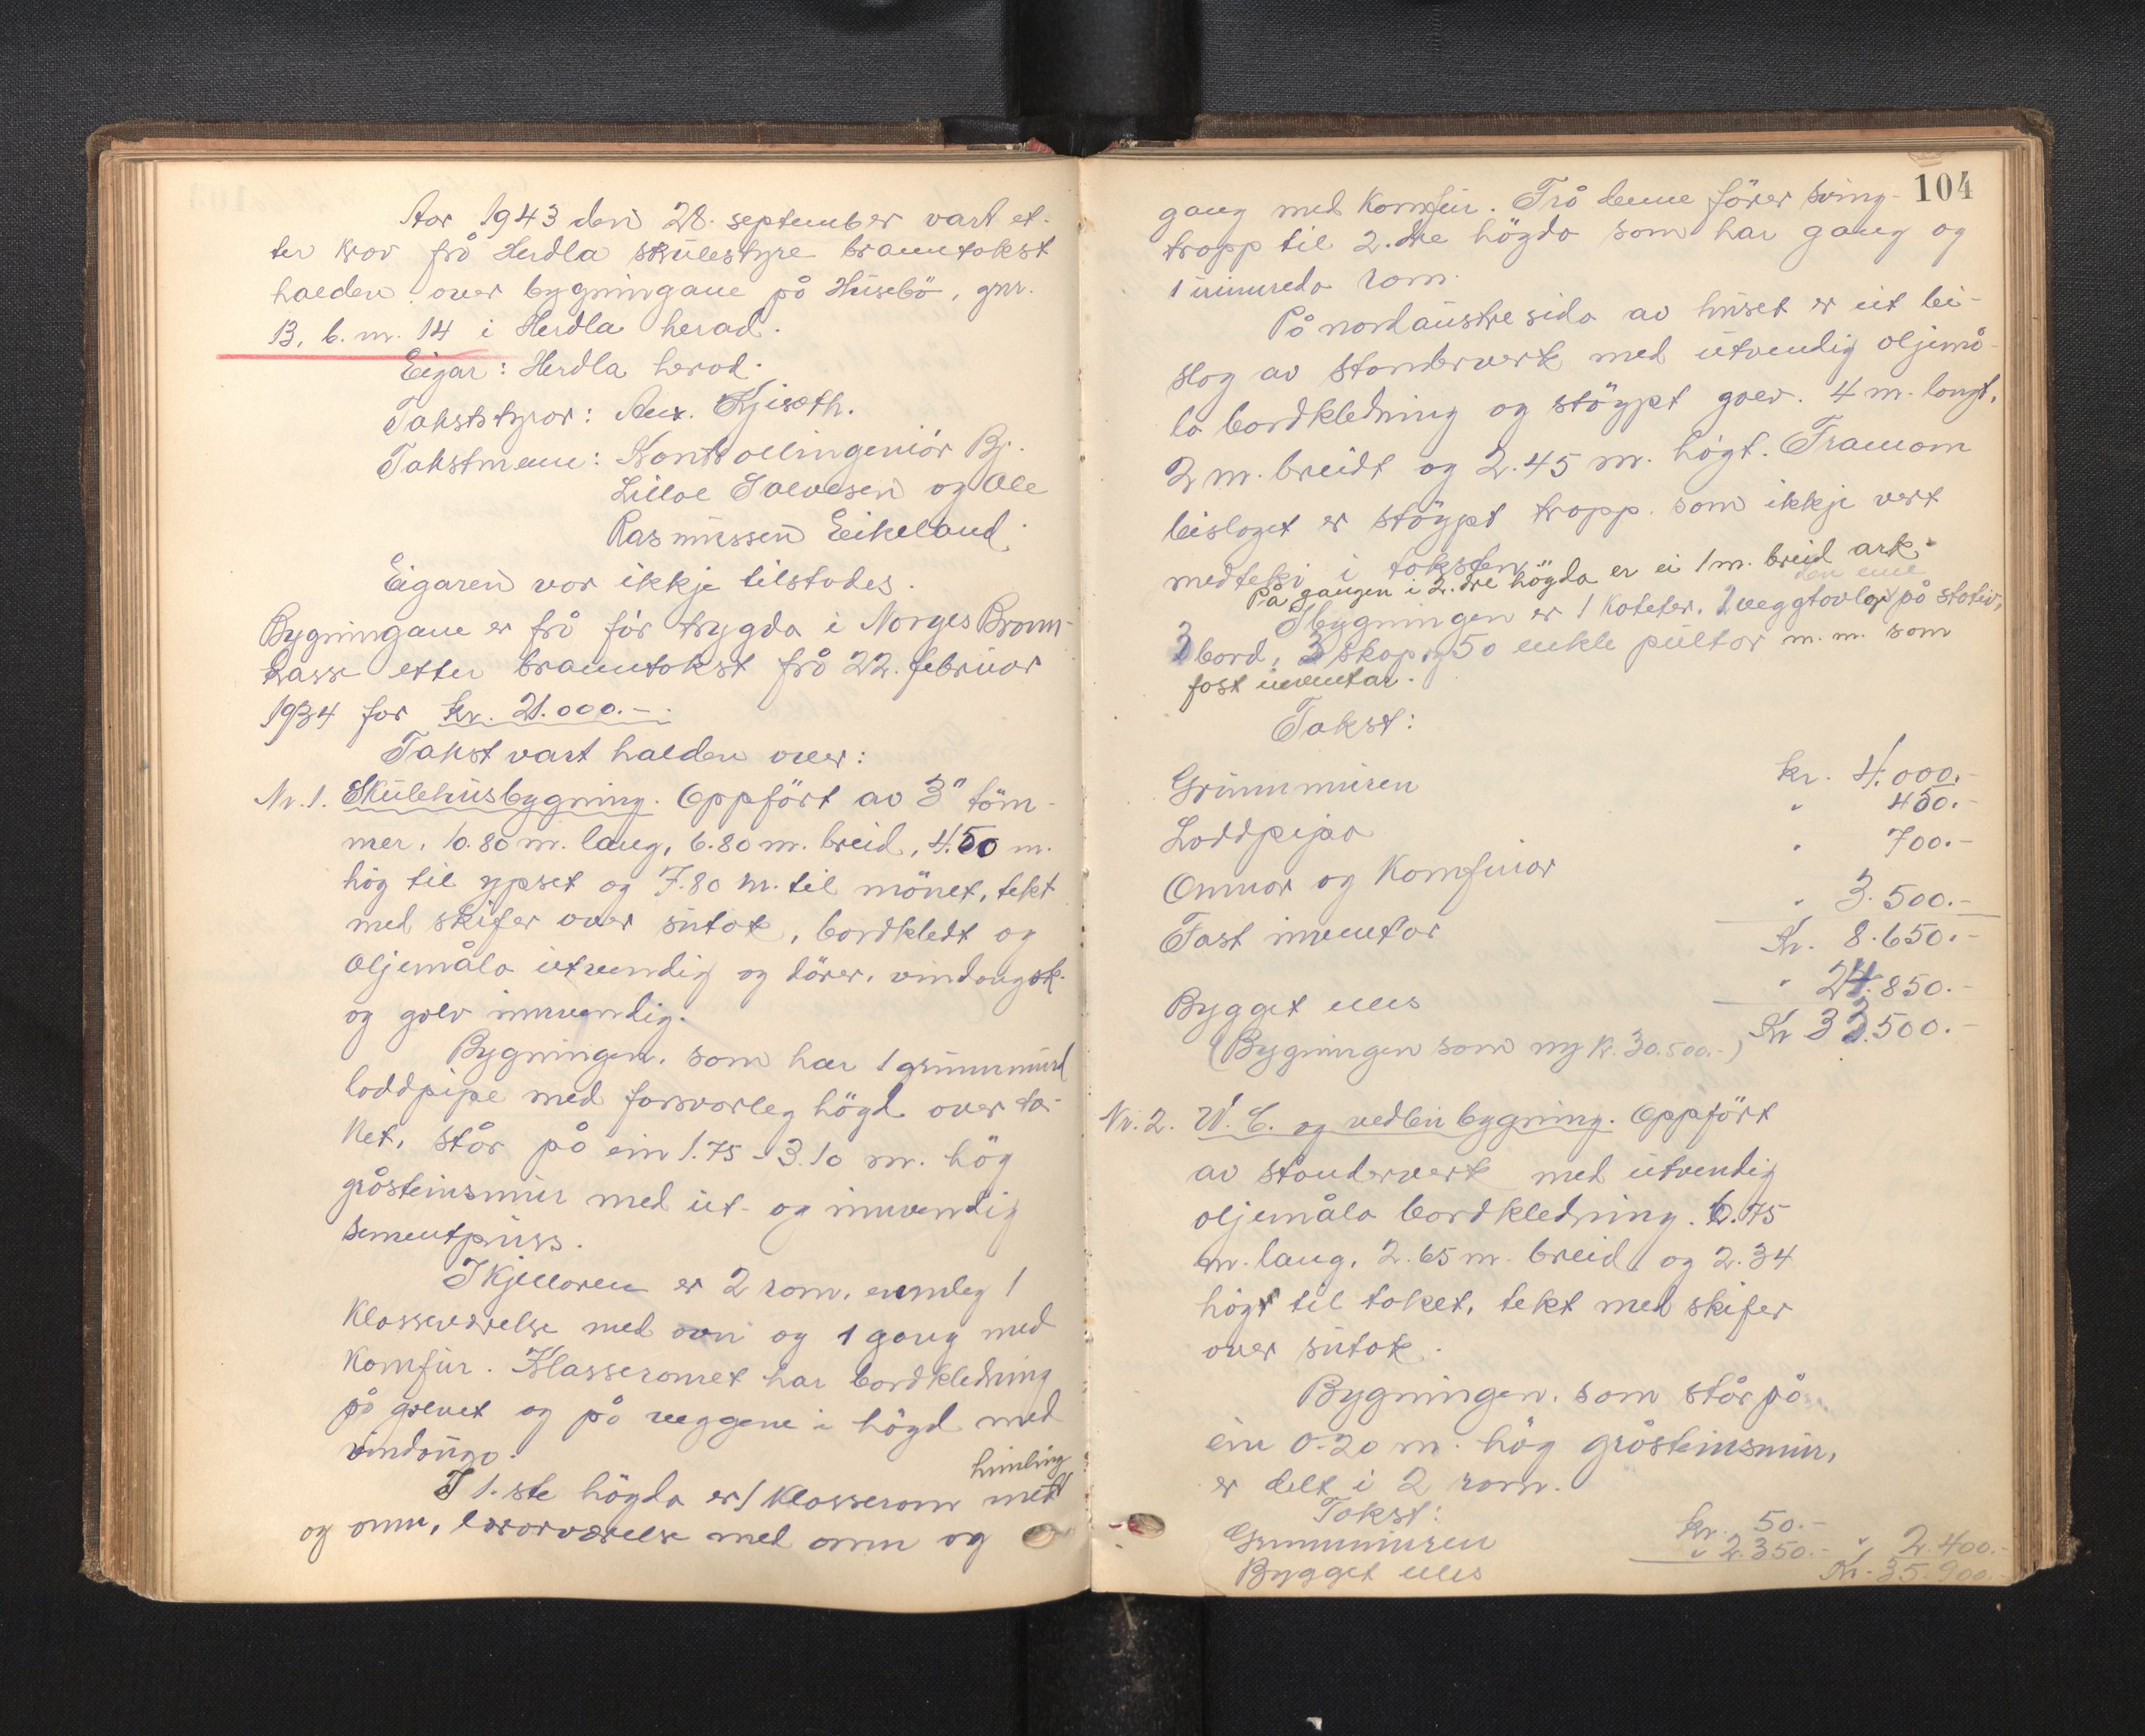 Aar 1943 den 28. september vart et-
ter krav frå Herdla skulestyre branntakst
halden over bygningane på Husebö, gnr.
13, b.nr. 14 i Herdla herad.
Eigar: Herdla herad.
Takststyrar:
Takstmenn: Kontrollingeniör Bj.
Lilloe Salvesen og Ole
Rasmussen Eikeland.
Eigaren var ikkje tilstades.
Bygningane er frå för trygda i Norges Brann-
kasse etter branntakst frå 22. februar
1934 for kr. 21.000.-.
Takst vart halden over:
Nr. 1. Skulehusbygning. Oppfört av 3" töm-
mer, 10.80 m. lang, 6.80 m. breid, 4.50 m.
hög til ypset og 7.80 m. til mönet, tekt
med skifer over sutak, bordkledt og
oljemåla utvendig og dörer, vindaugsk.
og golv innvendig.
Bygningen, som har 1 grunnmurd
loddpipe med forsvarleg högd over ta-
ket, står på ein 1.75 - 3.10 m. hög
gråsteinsmur med ut- og innvendig
sementpuss.
I kjellaren er 2 rom, nemleg 1
klasseværelse med ovn og 1 gang med
komfur. Klasseromet har bordkledning
på golvet og på veggene i högd med
vindauga.
himling
I 1.ste högda er 1 klasserom med
og omn, lærarværelse med omn og
104
gang med komfur. Frå denne förer sving-
trapp til 2.dre högda som har gang og
1 innreda rom.
På nordaustre sida av huset er eit bi-
slag av standerverk med utvendig oljemå-
la bordkledning og stöypt golv. 4 m. langt,
2 m. breidt og 2.45 m. högt. Framom
bislaget er stöypt trapp som ikkje vert
medteki i taksten.
På gangen i 2.dre högda er ei 1 m. breid ark.
den eine
I bygningen er 1 kateter, 2 veggtavler på stativ,
3 bord, 3 skap og 50 enkle pultar m.m. som
fast inventar.
Takst:
Grunnmuren kr. 4.000.-
Loddpipa " 450.-
Omnar og komfurar " 700.-
Fast inventar " 3.500.-
Kr. 8.650.-
Bygget elles " 24.850.-
(Bygningen som ny kr. 30.500.-) Kr 33.500.-
Nr. 2. W.C. og vedbu bygning. Oppfört
av standerverk med utvendig
oljemåla bordkledning. 6.75
m. lang, 2.65 m. breid og 2.34
högt til taket, tekt med skifer
over sutak.
Bygningen, som står på
ein 0.20 m. hög gråsteinsmur,
er delt i 2 rom.
Takst:
Grunnmuren kr. 50.-
Bygget elles " 2.350.- " 2.400.-
Kr. 35.900.-